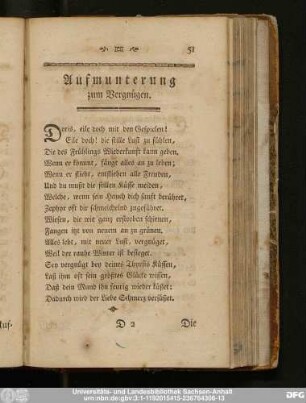 51
Aufmunterung
zum Vergnügen.
Doris, eile doch mit den Gespielen!
Eile doch! die stille Lust zu fühlen,
Die des Frühlings Wiederkunft kann geben.
Wenn er kömmt, fängt alles an zu leben;
Wenn er flieht, entfliehen alle Freuden,
Und du mußt die stillen Küsse meiden,
Welche, wenn sein Hauch dich sanft berühret,
Zephyr oft dir schmeichelnd zugeführet.
Wiesen, die mir ganz erstorben schienen,
Fangen itzt von neuem an zu grünen.
Alles lebt, mit neuer Lust, vergnüget,
Weil der rauhe Winter ist besieget.
Sey vergnügt bey deines Thyrsis Küssen,
Laß ihm oft sein größtes Glücke wissen,
Daß dein Mund ihn feurig wieder küsset;
Dadurch wird der Liebe Schmerz versüßet.
D 2 Die
Universitäts- und Landesbibliothek Sachsen-Anhalt
urn:nbn:de:gbv:3:1-1192015415-236754356-13
DFG